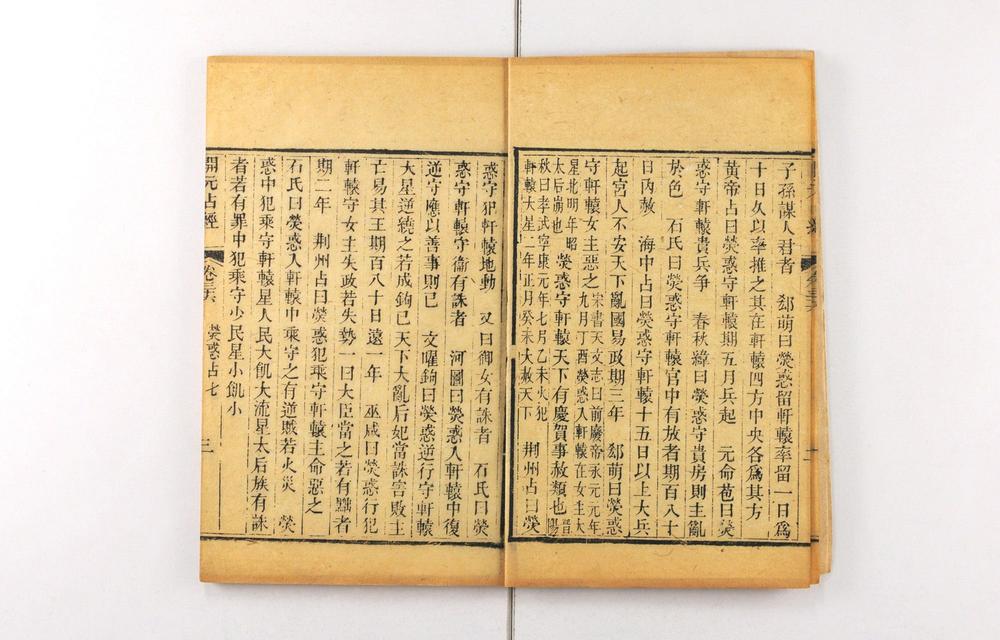 子孫謀人君者 郄萌曰熒惑留軒轅率留一日爲
十日久以率推之其在軒轅四方中央各爲其方
黃帝占曰熒惑守軒轅期五月兵起 元命苞曰熒
惑守軒轅貴兵爭 春秋緯曰熒惑守貴房則主亂
於色 石氏曰熒惑守軒轅宫中有放者期百八十
日內赦 海中占曰熒惑守軒轅十五日以上大兵
起宮人不安天下亂國易政期三年 郄萌曰熒惑
守軒轅女主惡之
宋書天文志曰前廢帝永元元年
九月丁酉熒惑入軒轅在女主大
星北明年昭
太后崩也
熒惑守軒轅天下有慶賀事赦類也
晉陽
秋曰孝武寧康元年七月乙未火犯
軒轅大星二年正月癸未大赦天下
荆州占曰熒
惑守犯軒轅地動 又曰御女有誅者 石氏曰熒
惑守軒轅守衞有誅者 河圖曰熒惑入軒轅中復
逆守應以善事則已 文曜鉤曰熒惑逆行守軒轅
大星逆繞之若成鉤已天下大亂后妃當誅害敗主
亡易其王期百八十日遠一年 巫咸曰熒惑行犯
軒轅守女主失政若失勢一曰大臣當之若有黜者
期二年 荆州占曰熒惑犯乘守軒轅主命惡之
石氏曰熒惑入軒轅中乘守之有逆賊若火災 熒
惑中犯乘守軒轅星人民大飢大流星太后族有誅
者若有罪中犯乘守少民星小飢小
開元占經 卷三六 熒惑占七 三